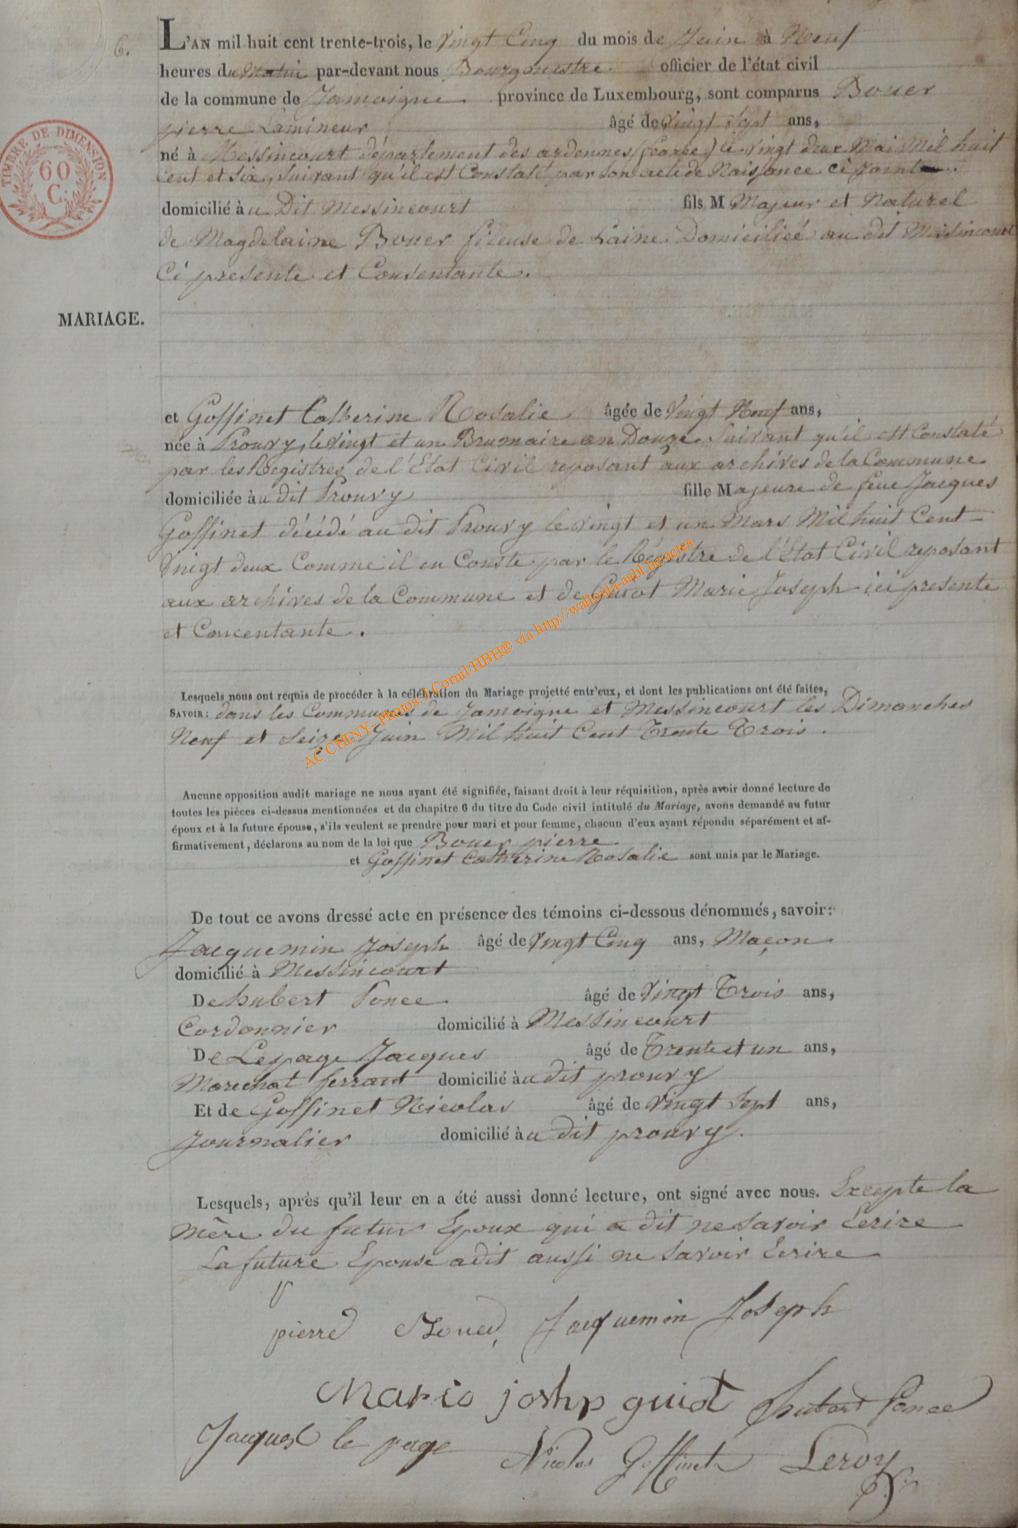 6.
L'AN mil huit cent trente-trois, le Vingt Cinq du mois de Juin à Neuf
heures du Matin par-devant nous Bourgmestre officier de l'état civil
de la commune de Jamoigne province de Luxembourg, sont comparus Bouer
pierre Lamineur âgé de Vingt Sept ans,
né à Messincourt département des ardennes le vingt deux Mai Mil huit
Cent et Six, Suivant qu'il est Constaté par Son acte de Naissance ci joint.
domicilié au Dit Messincourt fils M Majeur et Naturel
de Magdelaine Bouer fileuse de Laine Domiciliée au dit Messincourt
Ci presente et Consentante.
TIMBRE DE DIMENSION
60
C.
MARIAGE.
et Goffinet Catherine Rosalie âgée de Vingt Neuf ans,
née à Prouvy, le Vingt et un Brumaire an Douze, Suivant qu'il est Constaté
par les Registres de l'Etat Civil reposant aux archives de la Commune
domiciliée au dit Prouvy fille Majeure de feue Jacques
Goffinet décédé au dit Prouvy le vingt et un Mars Mil huit Cent
Vingt deux Comme il en Conste par le Régistre de l'Etat Civil reposant
aux archives de la Commune et de Guiot Marie Joseph ici presente
et Concentante.
Lesquels nous ont requis de procéder à la célébration du Mariage projetté entr'eux, et dont les publications ont été faites,
SAVOIR: dans les Communes de Jamoigne et Messincourt les Dimanches
Neuf et Seize Juin Mil huit Cent Trente Trois.
Aucune opposition audit mariage ne nous ayant été signifiée, faisant droit à leur réquisition, après avoir donné lecture de
toutes les pièces ci-dessus mentionnées et du chapitre 6 du titre du Code civil intitulé du Mariage, avons demandé au futur
époux et à la future épouse, s'ils veulent se prendre pour mari et pour femme, chacun d'eux ayant répondu séparément et af-
firmativement, déclarons au nom de la loi que Bouer pierre
et Goffinet Catherine Rosalie sont unis par le Mariage.
De tout ce avons dressé acte en présence des témoins ci-dessous dénommés, savoir:
Jacquemin Joseph âgé de Vingt Cinq ans, Maçon
domicilié à Messincourt
De hubert Ponce âgé de Vingt Trois ans,
Cordonnier domicilié à Messincourt
De Lepage Jacques âgé de Trente et un ans,
Marechal ferrant domicilié au dit prouvy
Et de Goffinet Nicolas âgé de Vingt Sept ans,
Journalier domicilié au dit prouvy.
Lesquels, après qu'il leur en a été aussi donné lecture, ont signé avec nous. Excepte la
Mère du futur Epoux qui a dit ne Savoir Ecrire
La future Epouse a dit aussi ne Savoir Ecrire
pierre Bouer, Jacquemin Joseph
Mario joshp guiot hubert Ponce
Jacques le page Nicolas Goffinet Leroy